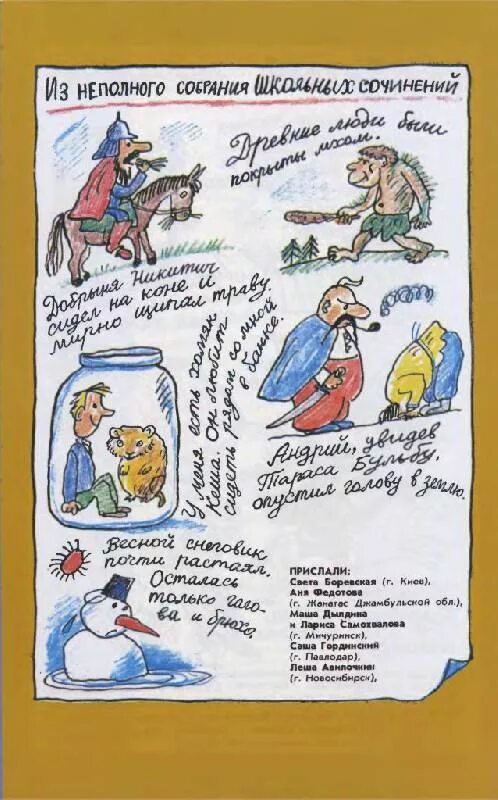 Из неполного собрания школьных сочинений
Древние люди были
покрыты мхом.
Добрыня Никитич
сидел на коне и
мирно щипал траву.
У меня есть хомяк
Кеша. Он любит
сидеть рядом со мной
в банке.
Андрий, увидев
Тараса Бульбу,
опустил голову в землю.
Весной снеговик
почти растаял.
Осталась
только гаго-
ва и брюхо.
ПРИСЛАЛИ:
Света Боревская (г. Киев),
Аня Федотова
(г. Жанатас Джамбульской обл.),
Маша Дылдина
и Лариса Самохвалова
(г. Мичуринск),
Саша Гординский
(г. Павлодар),
Леша Авилочкин
(г. Новосибирск),